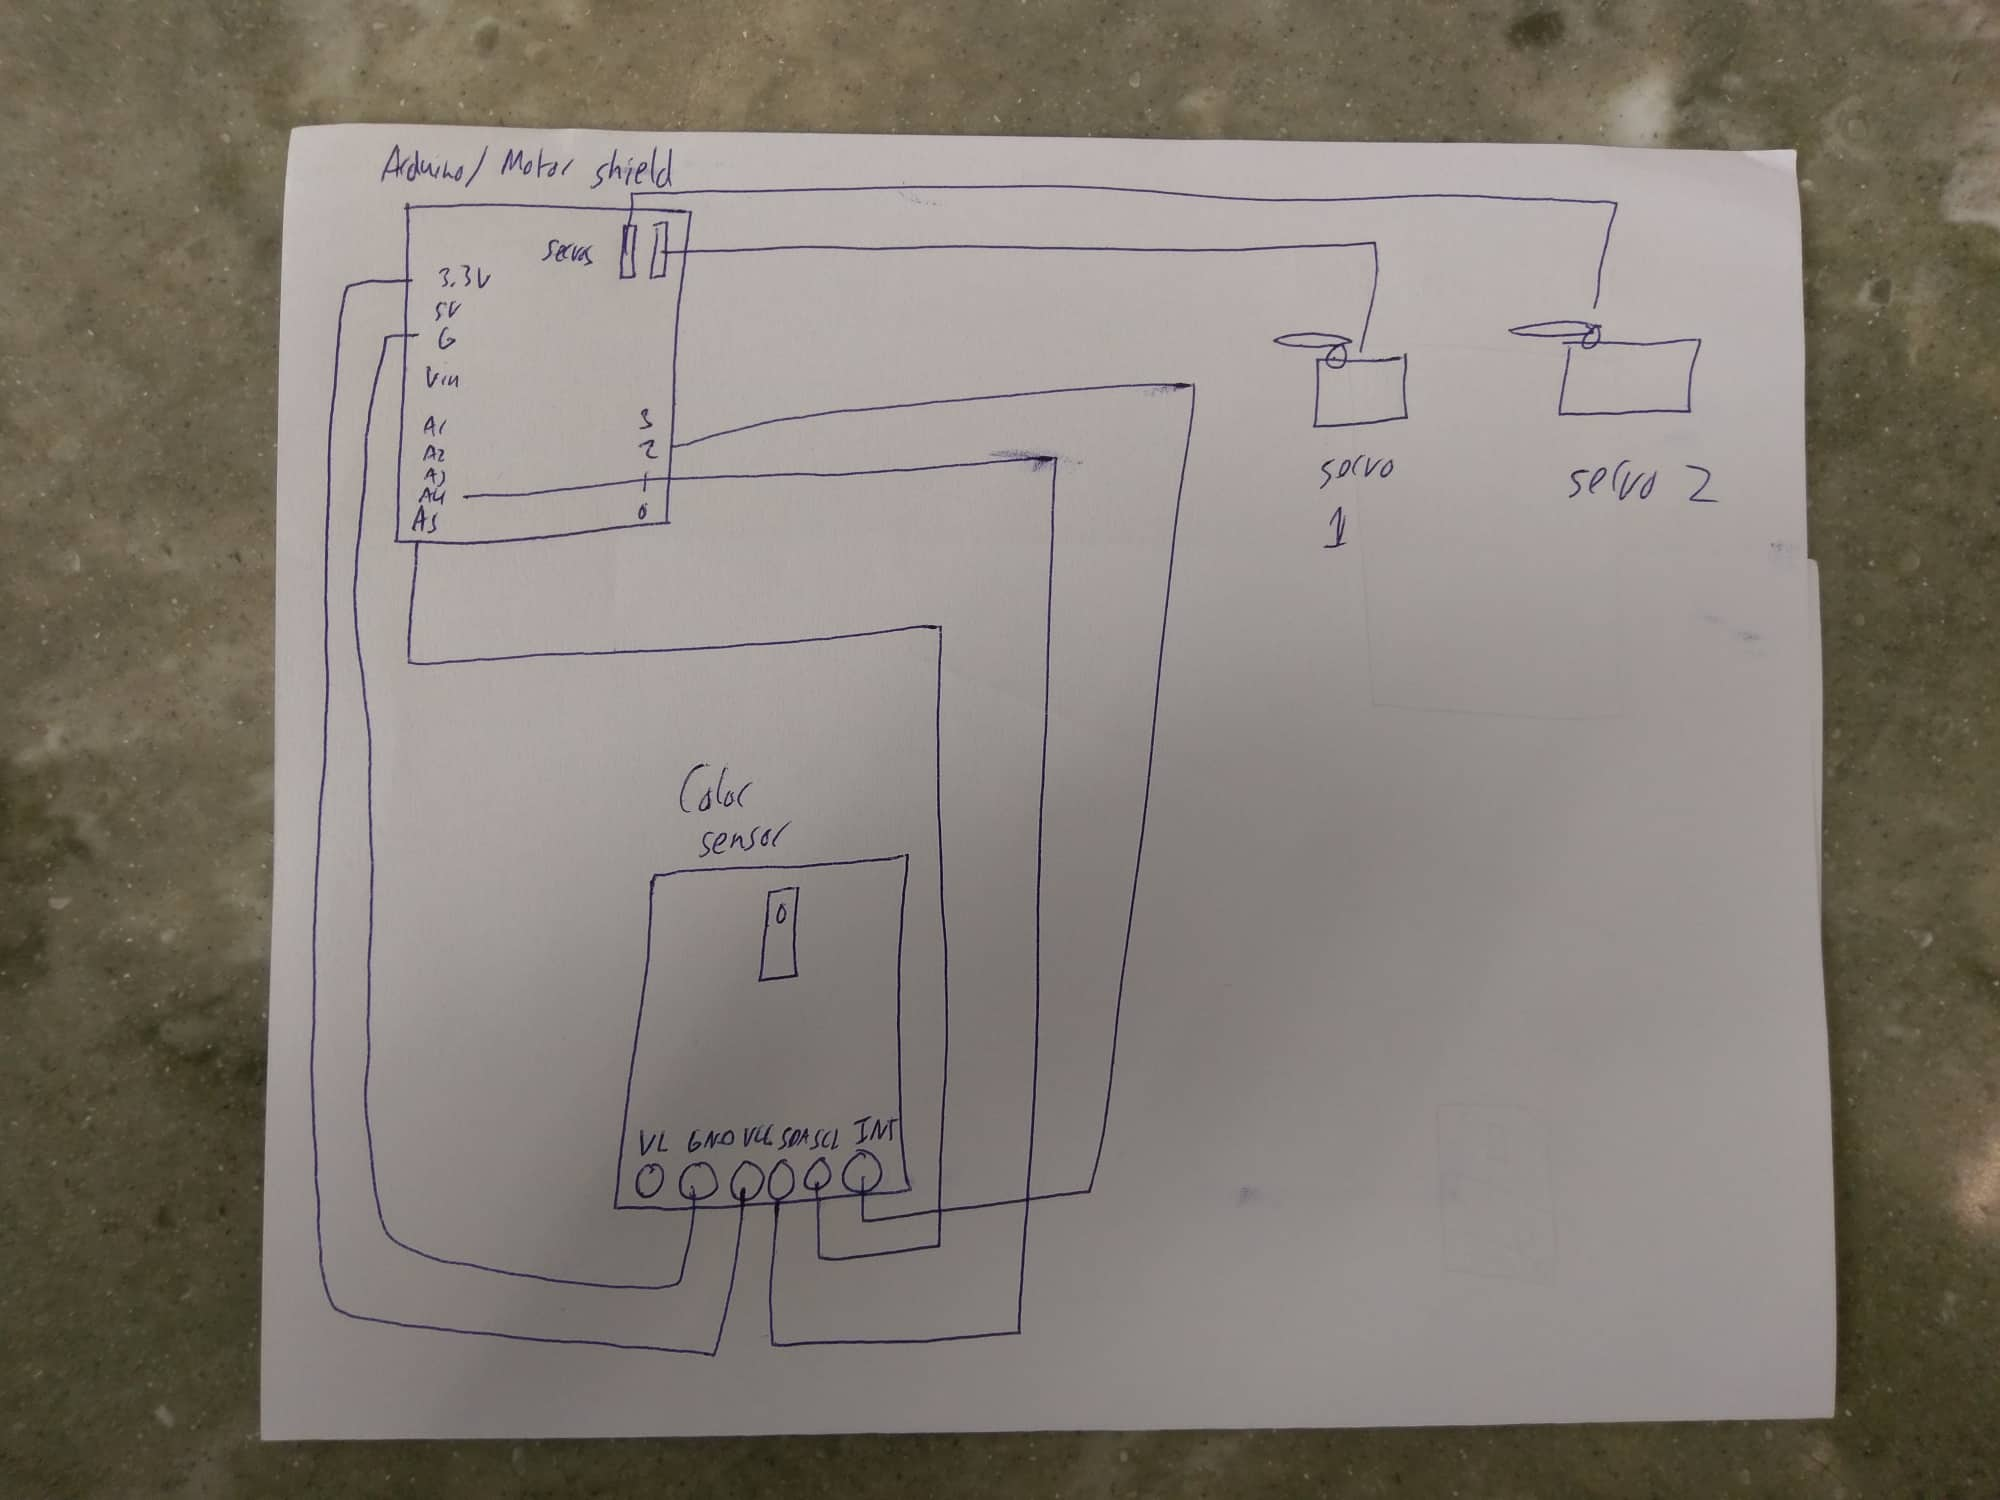 Arduino/ Motor shield
servos
3.3V
5V
G
Vin
A1
A2
A3
A4
A5
3
2
1
0
servo
1
servo 2
Color
sensor
VL GND VCC SDA SCL INT